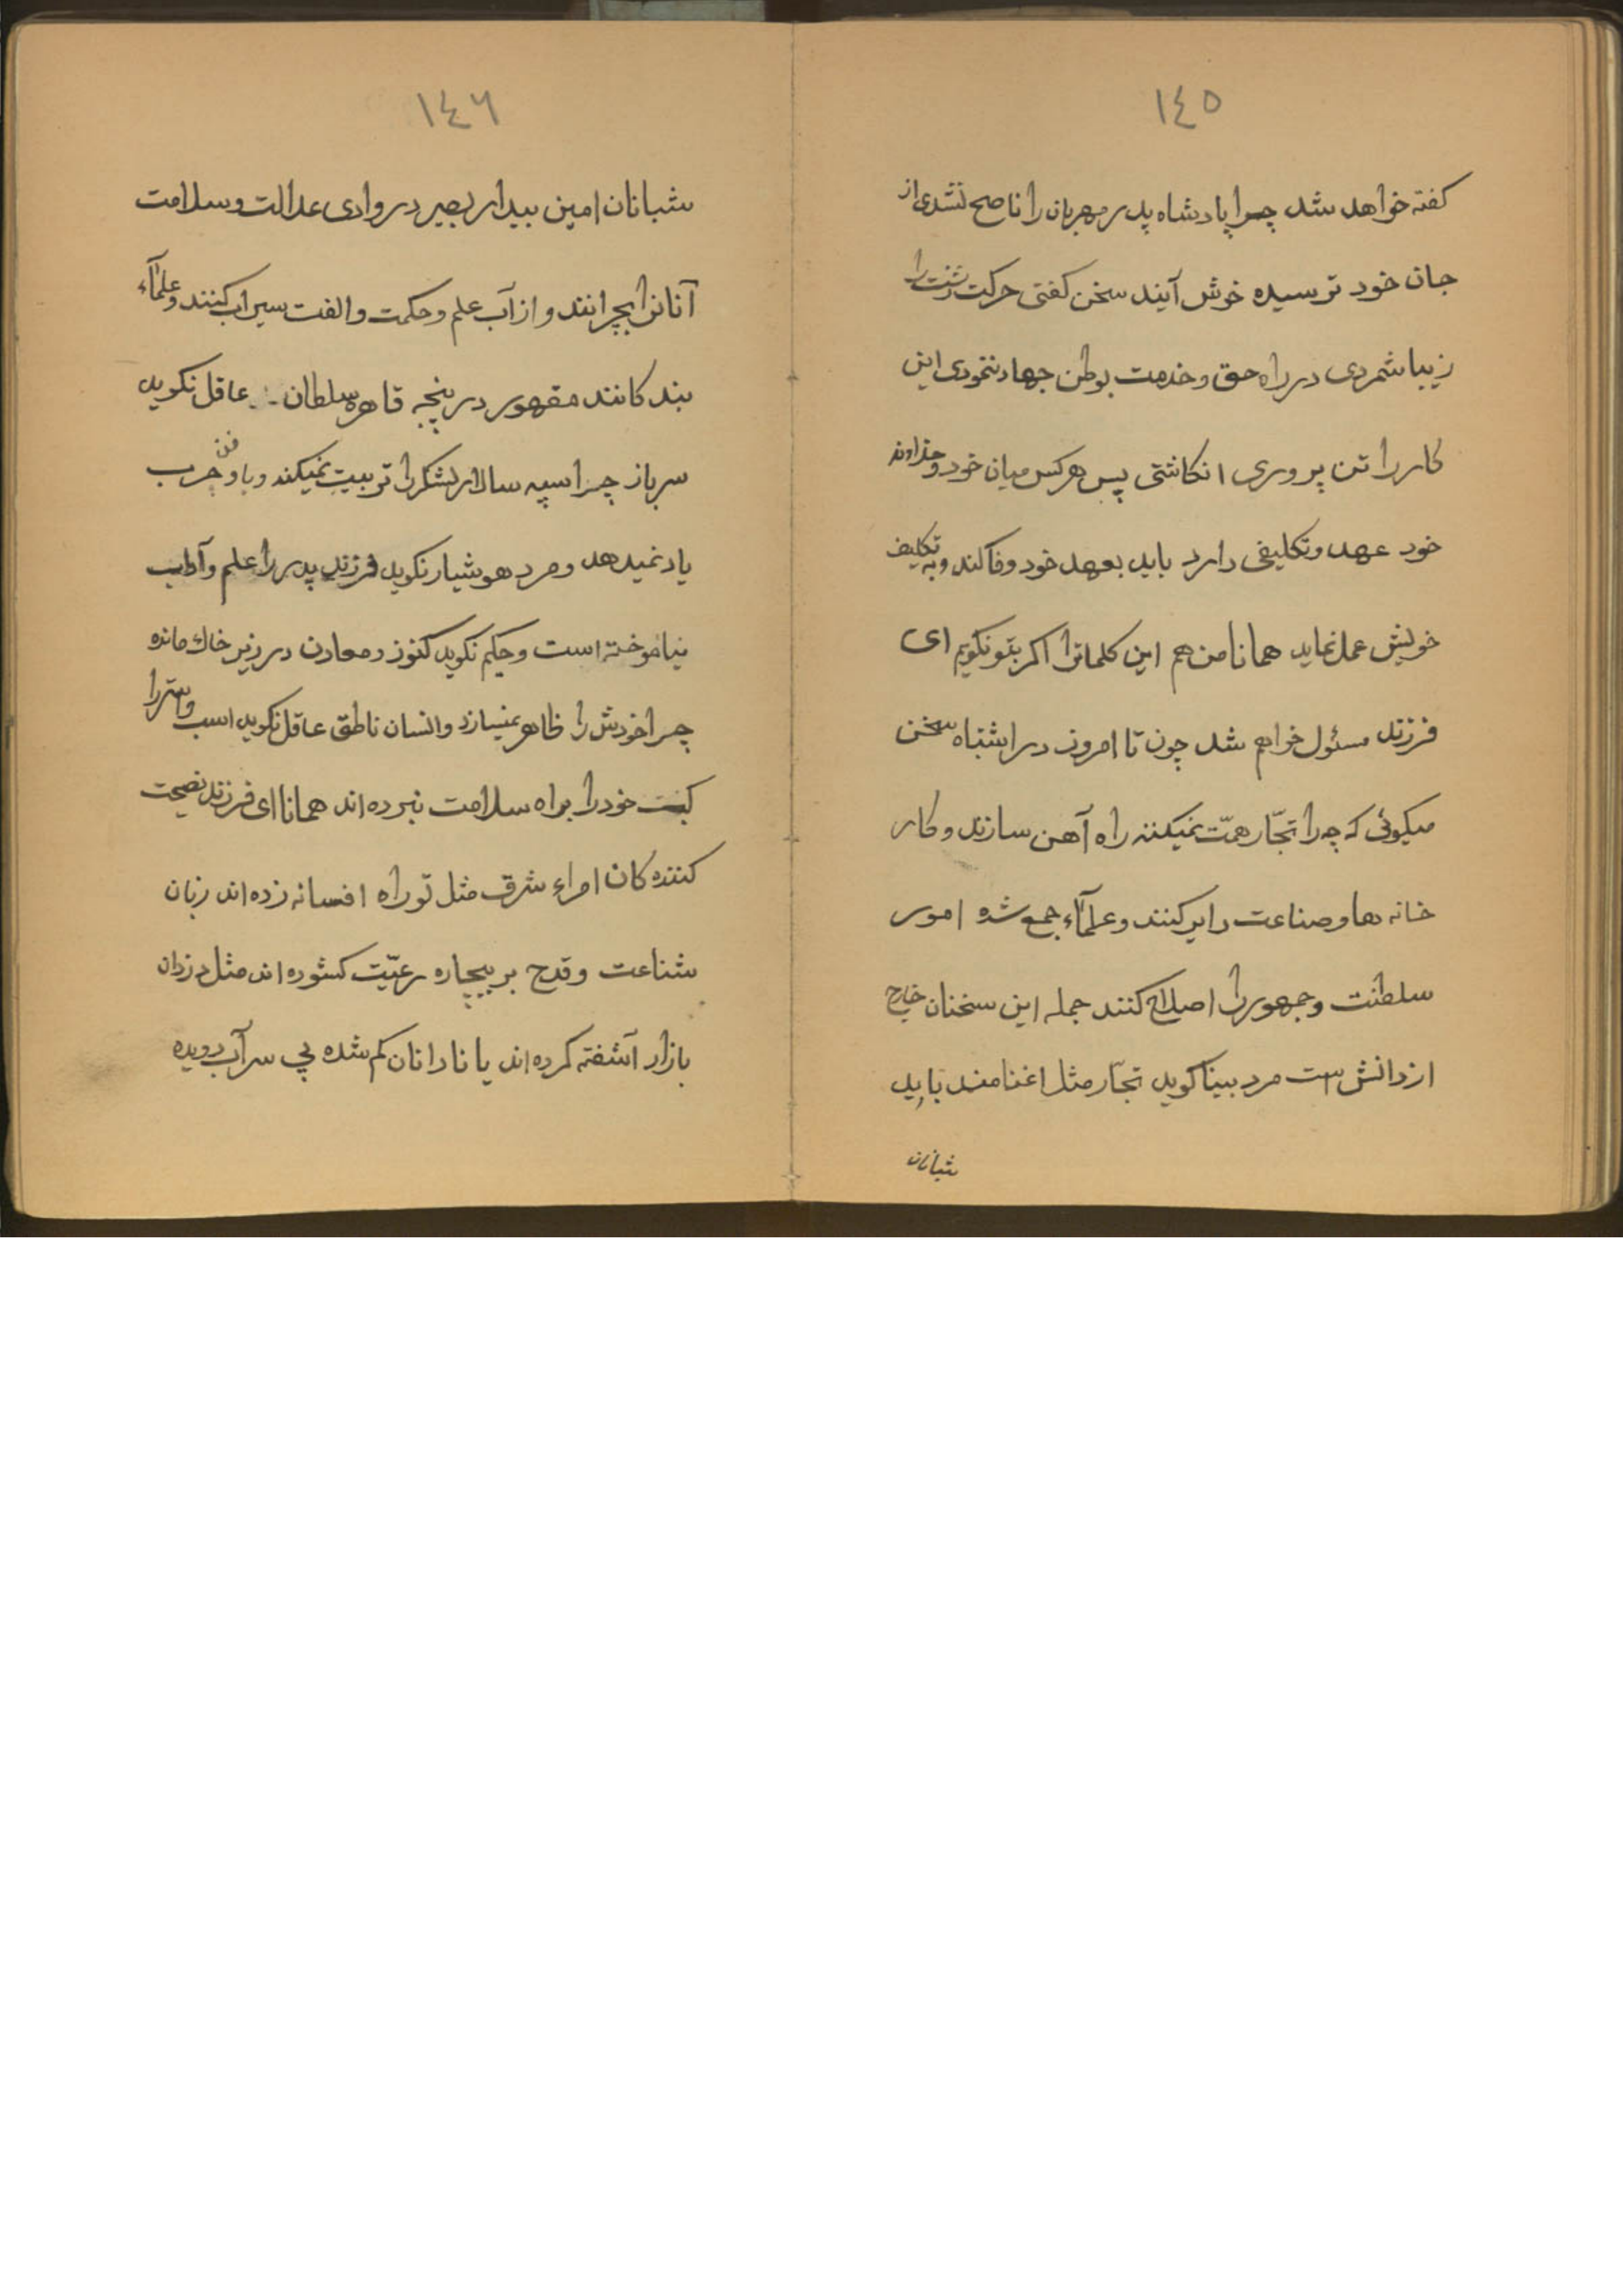 ١٤٥
كفته خواهد شد چرا پادشاه پدر مهربان را ناصح نشدی از
جان خود ترسیده خوش آیند سخن كفتی حركت زشت را
زیبا شمردی در راه حق و خدمت بوطن جهاد ننمودی این
كار را تن پروری انكاشتی پس هر كس میان خود و خداوند
خود عهد و تكلیفی دارد باید بعهد خود وفا كند و به تكلیف
خویش عمل نماید همانا من هم این كلماترا اكر بتو نكویم ای
فرزند مسئول خواهم شد چون تا امروز در اشتباه سخن
میكوئی كه چرا تجّار همّت نمیكنند راه آهن سازند و كار
خانه ها و صناعت دایر كنند و علمآء جمع شده امور
سلطنت و جمهور را اصلاح كنند جمله این سخنان خارج
از دانش است مرد بینا كوید تجّار مثل اغنامند باید
شبانان
١٤٦
شبانان امین بیدار بصیر در وادی عدالت و سلامت
آنانرا بچرانند و از آب علم و حكمت و الفت سیراب كنند و علمآء
بند كانند مقهور در پنجه قاهره سلطان عاقل نكوید
سرباز چرا سپه سالار لشكر را تربیت نمیكند و باو فن حرب
یاد نمیدهد و مرد هوشیار نكوید فرزند پدر را علم و آداب
نیاموخته است و حكیم نكوید كنوز و معادن در زیر خاك مانده
چرا خودش را ظاهر نمیسازد و انسان ناطق عاقل نكوید اسب و استر را
كه خود را براه سلامت نبرده اند همانا ای فرزند نصیحت
كننده كان امراء شرق مثل تو راه افسانه زده اند زبان
شناعت و قدح بر بیچاره رعیّت كشوده اند مثل دزدان
بازار آشفته كرده اند یا نادانان كم شده پی سرآب دویده